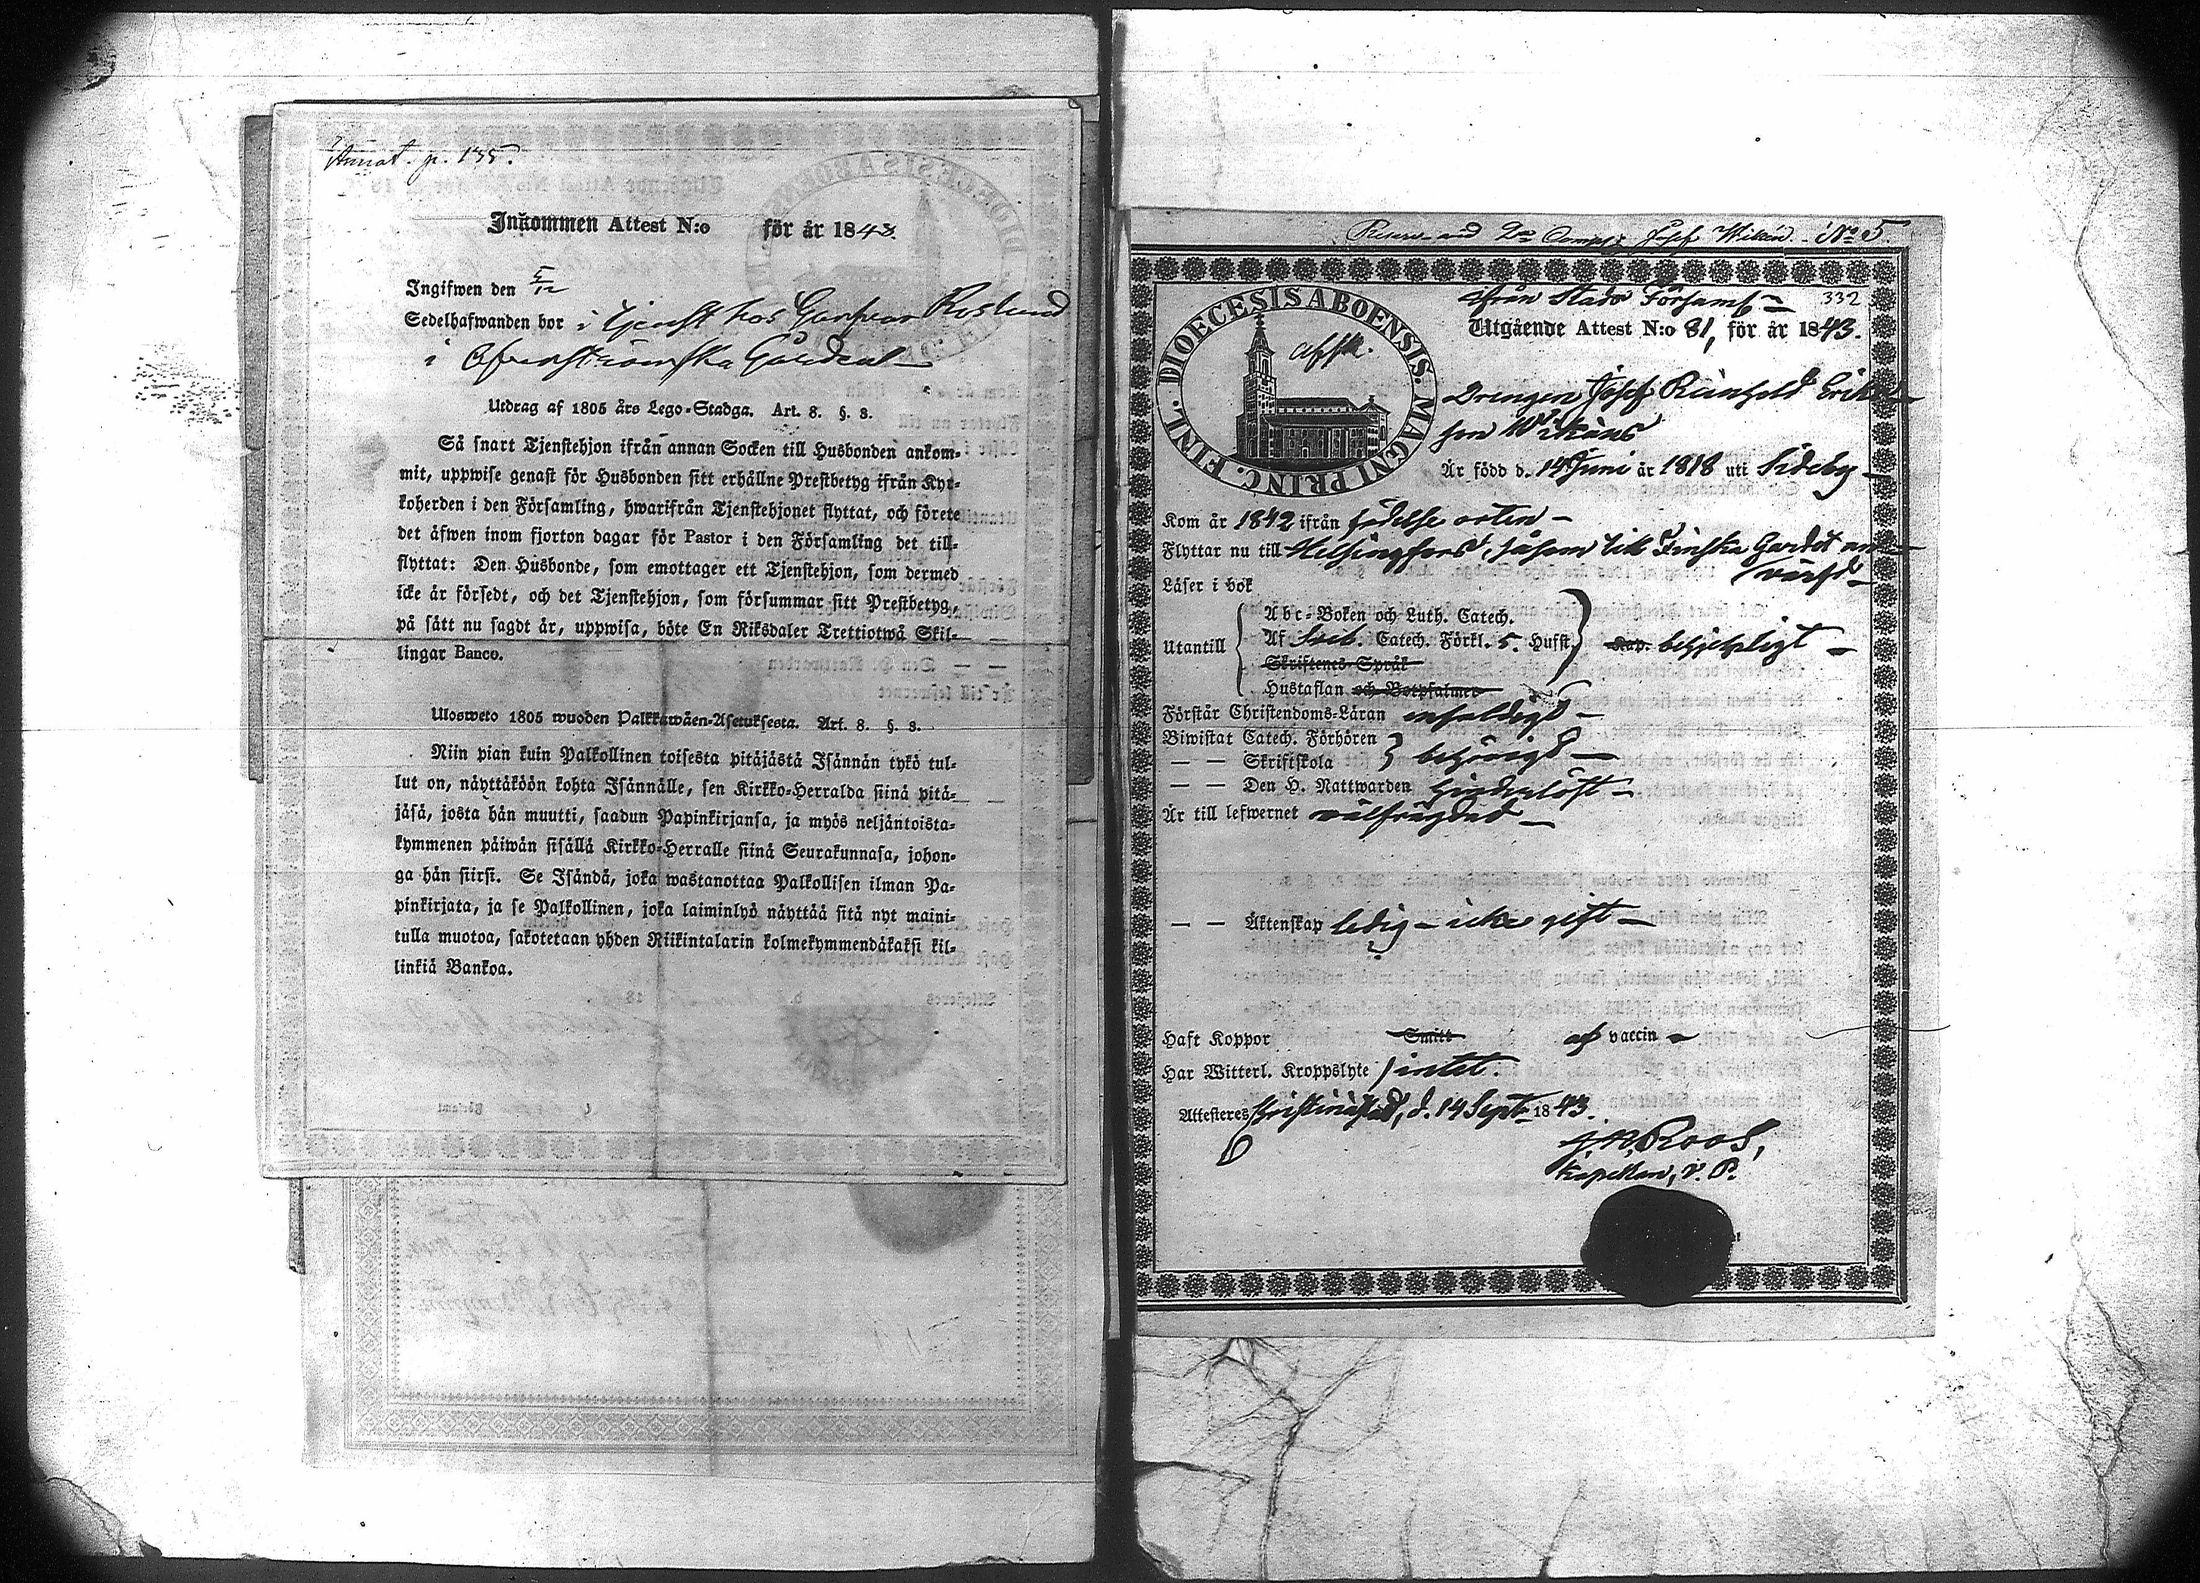 Annot. p. 135.
Inkommen Attest N:o för år 1843.
Ingifwen den 5/12
Sedelhafwanden bor i tjenst hos
i Gården
Utdrag af 1805 års Lego-Stadga. Art. 8. §. 3.
Så snart Tjenstehjon ifrån annan Socken till Husbonden ankom-
mit, uppwise genast för Husbonden sitt erhållne Prestbetyg ifrån Kyr-
koherden i den Församling, hwarifrån Tjenstehjonet flyttat, och förete
det äfwen inom fjorton dagar för Pastor i den Församling det till-
flyttat: Den Husbonde, som emottager ett Tjenstehjon, som dermed
icke är försedt, och det Tjenstehjon, som försummar sitt Prestbetyg,
på sätt nu sagdt är, uppwisa, böte En Riksdaler Trettiotwå Skil-
lingar Banco.
Ulosweto 1805 wuoden Palkkawäen-Asetuksesta. Art. 8. §. 3.
Niin pian kuin Palkollinen toisesta pitäjästä Isännän tykö tul-
lut on, näyttäköön kohta Isännälle, sen Kirkko-Herralda siinä pitä-
jäsä, josta hän muutti, saadun Papinkirjansa, ja myös neljäntoista-
kymmenen päiwän sisällä Kirkko-Herralle siinä Seurakunnasa, johon-
ga hän siirsi. Se Isändä, joka wastanottaa Palkollisen ilman Pa-
pinkirjata, ja se Palkollinen, joka laiminlyö näyttää sitä nyt maini-
tulla muotoa, sakotetaan yhden Riikintalarin kolmekymmendäkaksi kil-
linkiä Bankoa.
Josef Wikén. No 5.
332
ifrån Stads Församl.
Utgående Attest N:o 81, för år 1843.
DIOECESIS ABOENSIS. MAGNI PRINC. FINL.
Drengen Josef Reinhold Eriks-
son
Är född d. 14 Juni år 1818 uti Sideby
Kom år 1842 ifrån födelse orten
Flyttar nu till Helsingfors, såsom till Finska Gardet an-
värfd
Läser i bok
Utantill
Abc-Boken och Luth. Catech.
Af Sveb. Catech. Förkl. 5. Hufst. Kap. behjelpligt
Skriftenes Språk
Hustaflan och Botpsalmer
Förstår Christendoms-Läran enfaldigt
Biwistat Catech. Förhören
— — Skriftskola behörigt
— — Den H. Nattwarden hinderlöst
Är till lefwernet välfrägdad
— — Äktenskap ledig - icke gift
Haft Koppor Smitt af vaccin
Har Witterl. Kroppslyte intet.
Attesteres Kristinestad, d. 14 Sept. 1843.
J. R. Roos,
Kapellan, v. P.